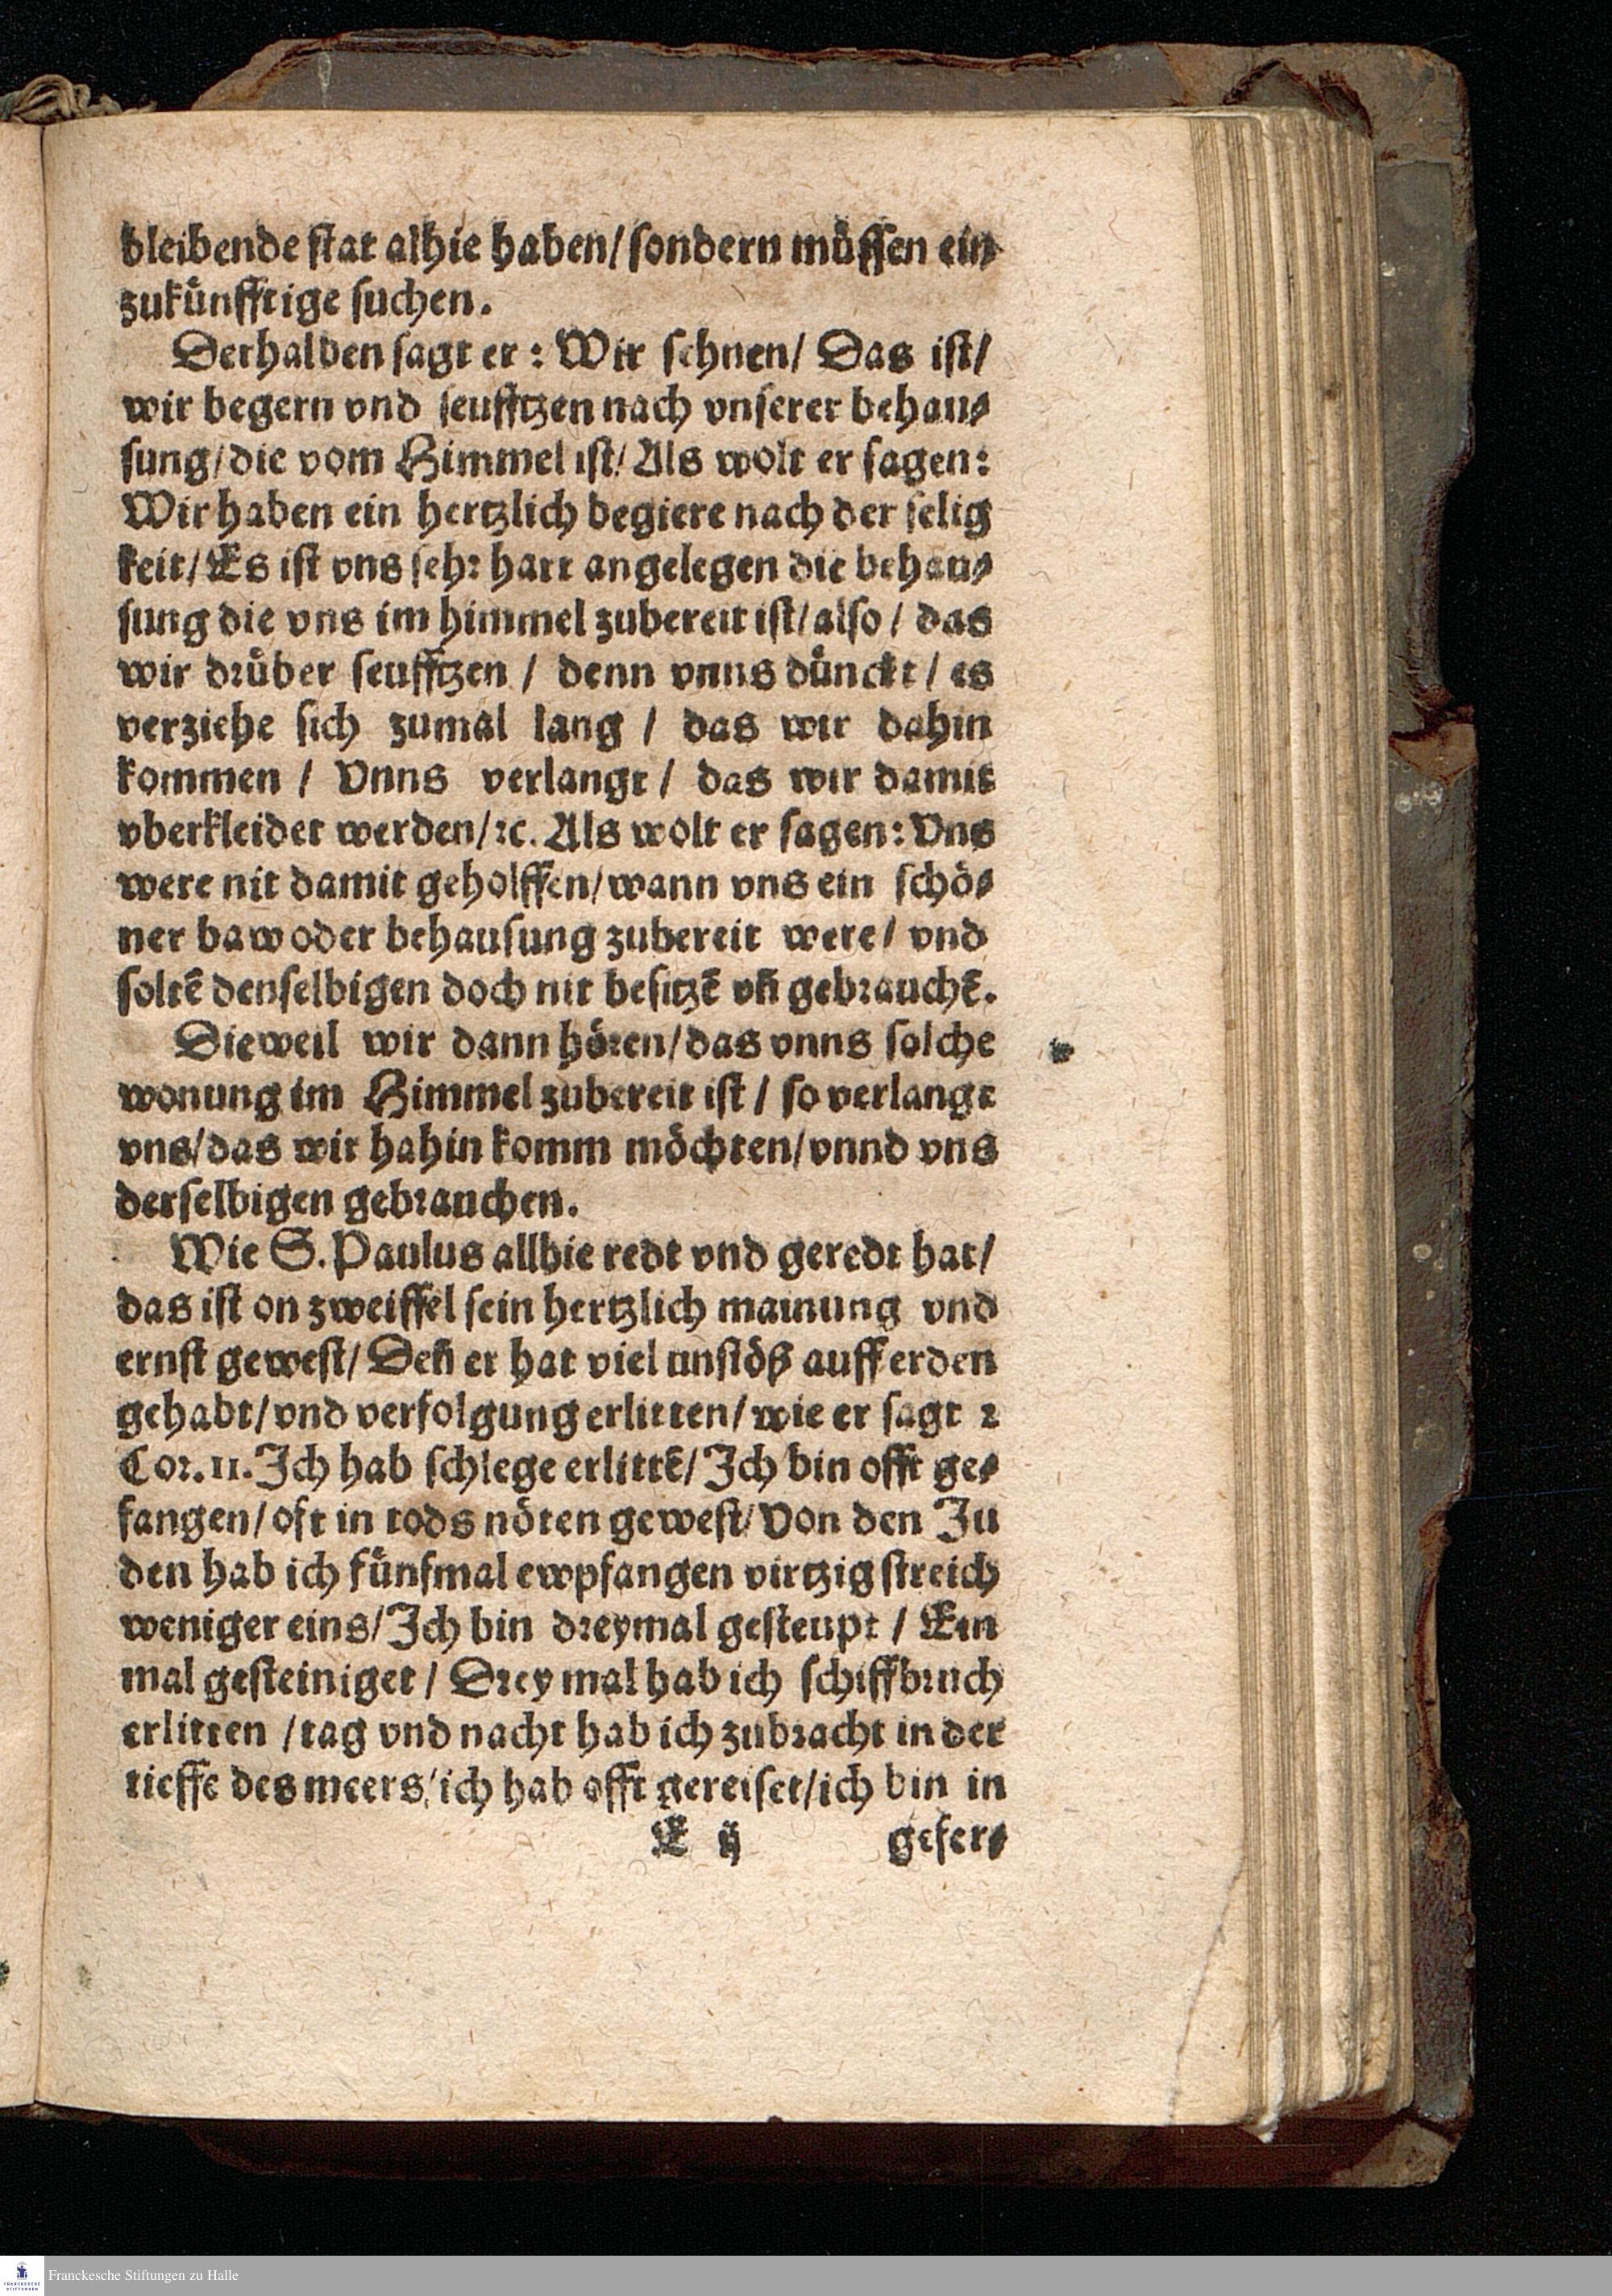 bleibende ſtat alhie haben/ ſondern müſſen ein
zukünfftige ſuchen.
Derhalben ſagt er: Wir ſehnen/ Das iſt/
wir begern vnd ſeufftzen nach vnſerer behau⸗
ſung/ die vom Himmel iſt/ Als wolt er ſagen:
Wir haben ein hertzlich begiere nach der ſelig
keit/ Es iſt vns ſehr hart angelegen die behau⸗
ſung die vns im himmel zubereit iſt/ alſo/ das
wir drüber ſeufftzen / denn vnns dünckt / es
verziehe ſich zumal lang / das wir dahin
kommen / Vnns verlangt / das wir damit
vberkleidet werden/ ꝛc. Als wolt er ſagen: Vns
were nit damit geholffen/ wann vns ein ſchö⸗
ner baw oder behauſung zubereit were/ vnd
ſoltẽ denſelbigen doch nit beſitzẽ vñ gebrauchẽ.
Dieweil wir dann hören/ das vnns ſolche
wonung im Himmel zubereit iſt / ſo verlangt
vns/ das wir hahin komm möchten/ vnnd vns
derſelbigen gebrauchen.
Wie S. Paulus allhie redt vnd geredt hat/
das iſt on zweiffel ſein hertzlich mainung vnd
ernſt geweſt/ Deñ er hat viel anſtöß auff erden
gehabt/ vnd verfolgung erlitten/ wie er ſagt 2
Cor. 11. Ich hab ſchlege erlittẽ/ Ich bin offt ge⸗
fangen/ oft in tods nöten geweſt/ Von den Ju
den hab ich fünfmal ewpfangen virtzig ſtreich
weniger eins/ Ich bin dreymal geſteupt / Ein
mal geſteiniget / Drey mal hab ich ſchiffbruch
erlitten / tag vnd nacht hab ich zubracht in der
tieffe des meers/ ich hab offt gereiſet/ ich bin in
E ij gefer⸗
Franckesche Stiftungen zu Halle
FRANCKESCHE
STIFTUNGEN